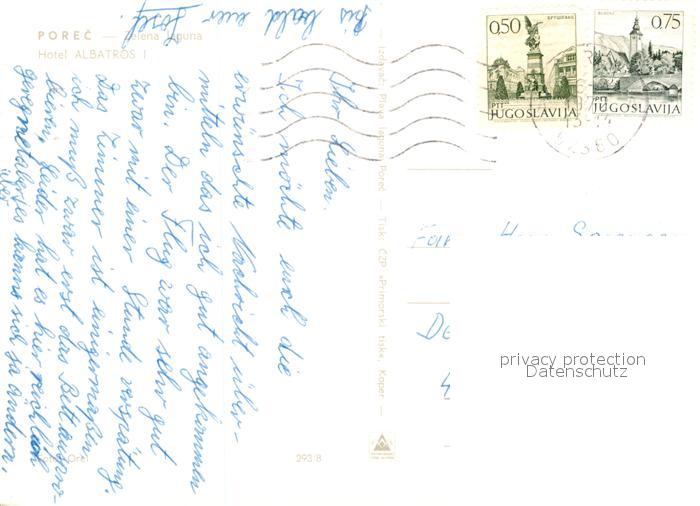 POREČ — Zelena laguna
Hotel ALBATROS I
Ihr Lieben.
Ich möchte euch die
erwünschte Nachricht über-
mitteln das ich gut angekommen
bin. Der Flug war sehr gut
zwar mit einer Stunde verspätung.
Das Zimmer ist einigermaßen
ich muß zwar erst das Bett auspro-
bieren, leider hat es hier reichlich
geregnet aber es kann sich ja ändern.
Bis bald euer Josef.
— Izdavač: Plava laguna, Poreč — Tisk: ČZP »Primorski tisk«, Koper —
293/8
0,50
PTT
JUGOSLAVIJA
0,75
PTT
JUGOSLAVIJA
privacy protection
Datenschutz